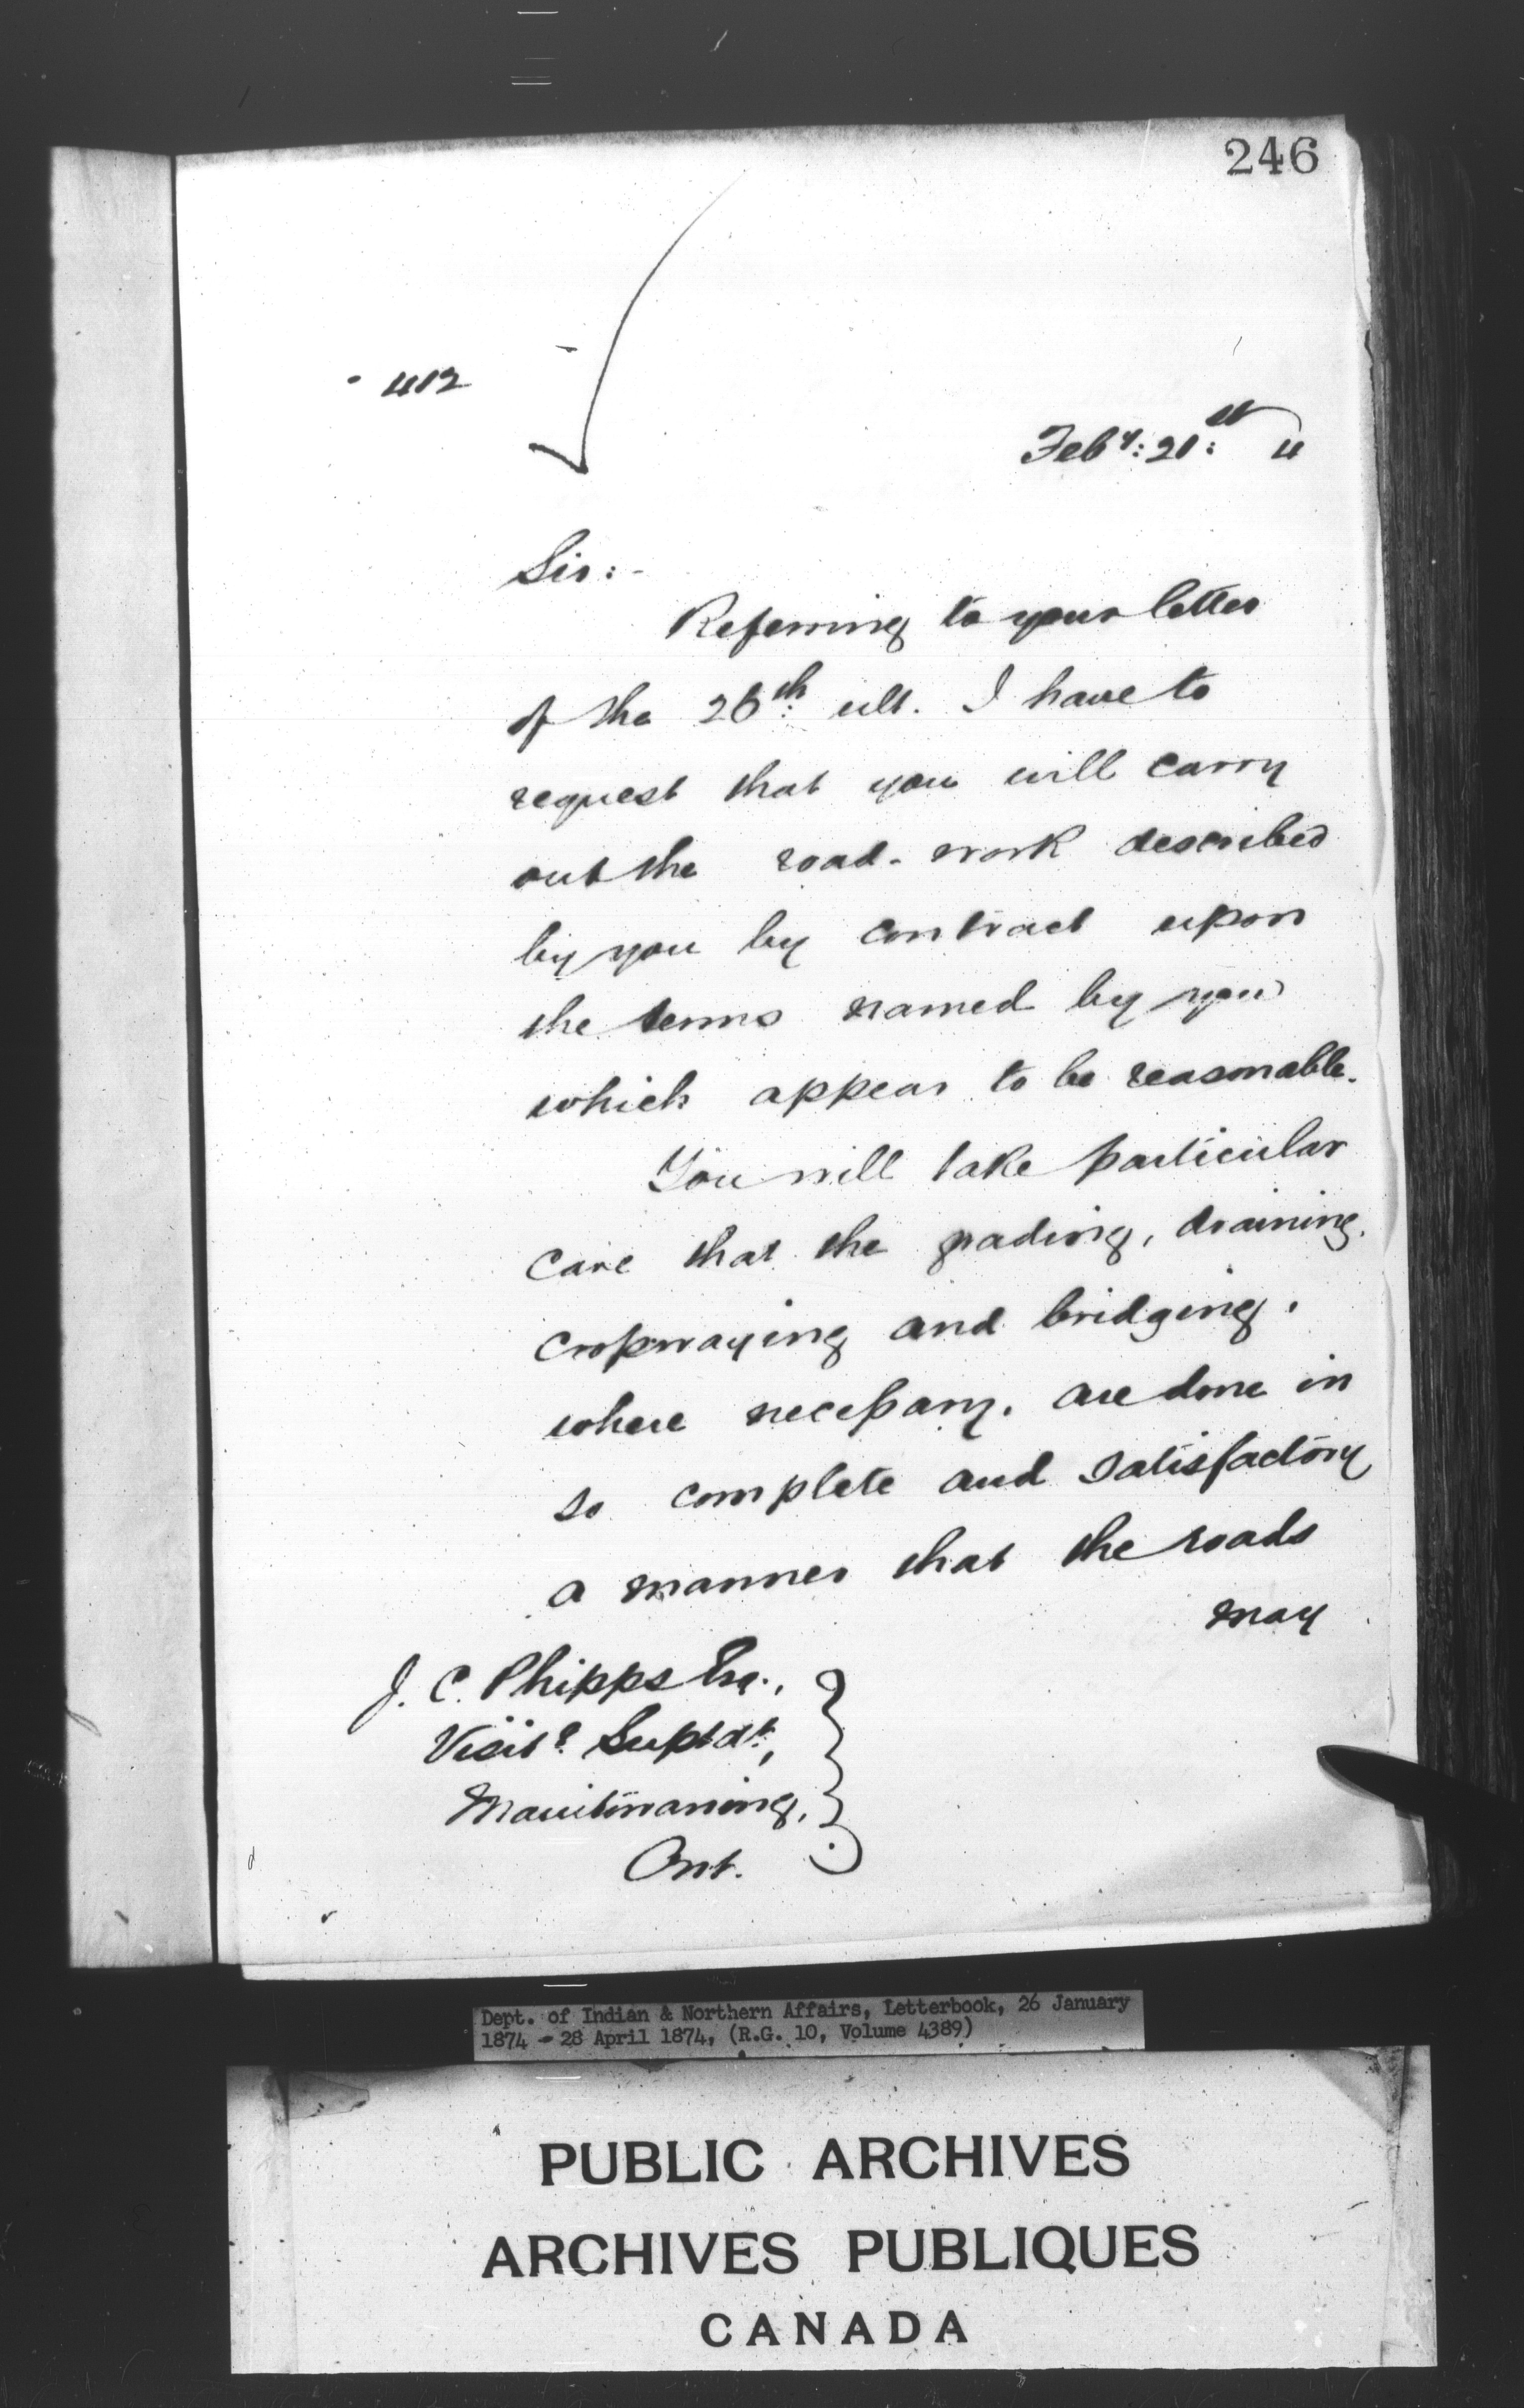 246
412
Feby: 21:st 4
Sir:-
Referring to your letter
of the 26th: ult. I have to
request that you will carry
out the road-work described
by you by contract upon
the terms named by you
which appear to be reasonable.
You will take particular
care that the grading, draining,
crosswaying and bridging,
where necessary, are done in
so complete and satisfactory
a manner that the roads
may
J. C. Phipps Esq.,
Visitg. Suptdt.,
Manitowaning,
Ont.
Dept. of Indian & Northern Affairs, Letterbook, 26 January
1874 - 28 April 1874, (R.G. 10, Volume 4389)
PUBLIC ARCHIVES
ARCHIVES PUBLIQUES
CANADA